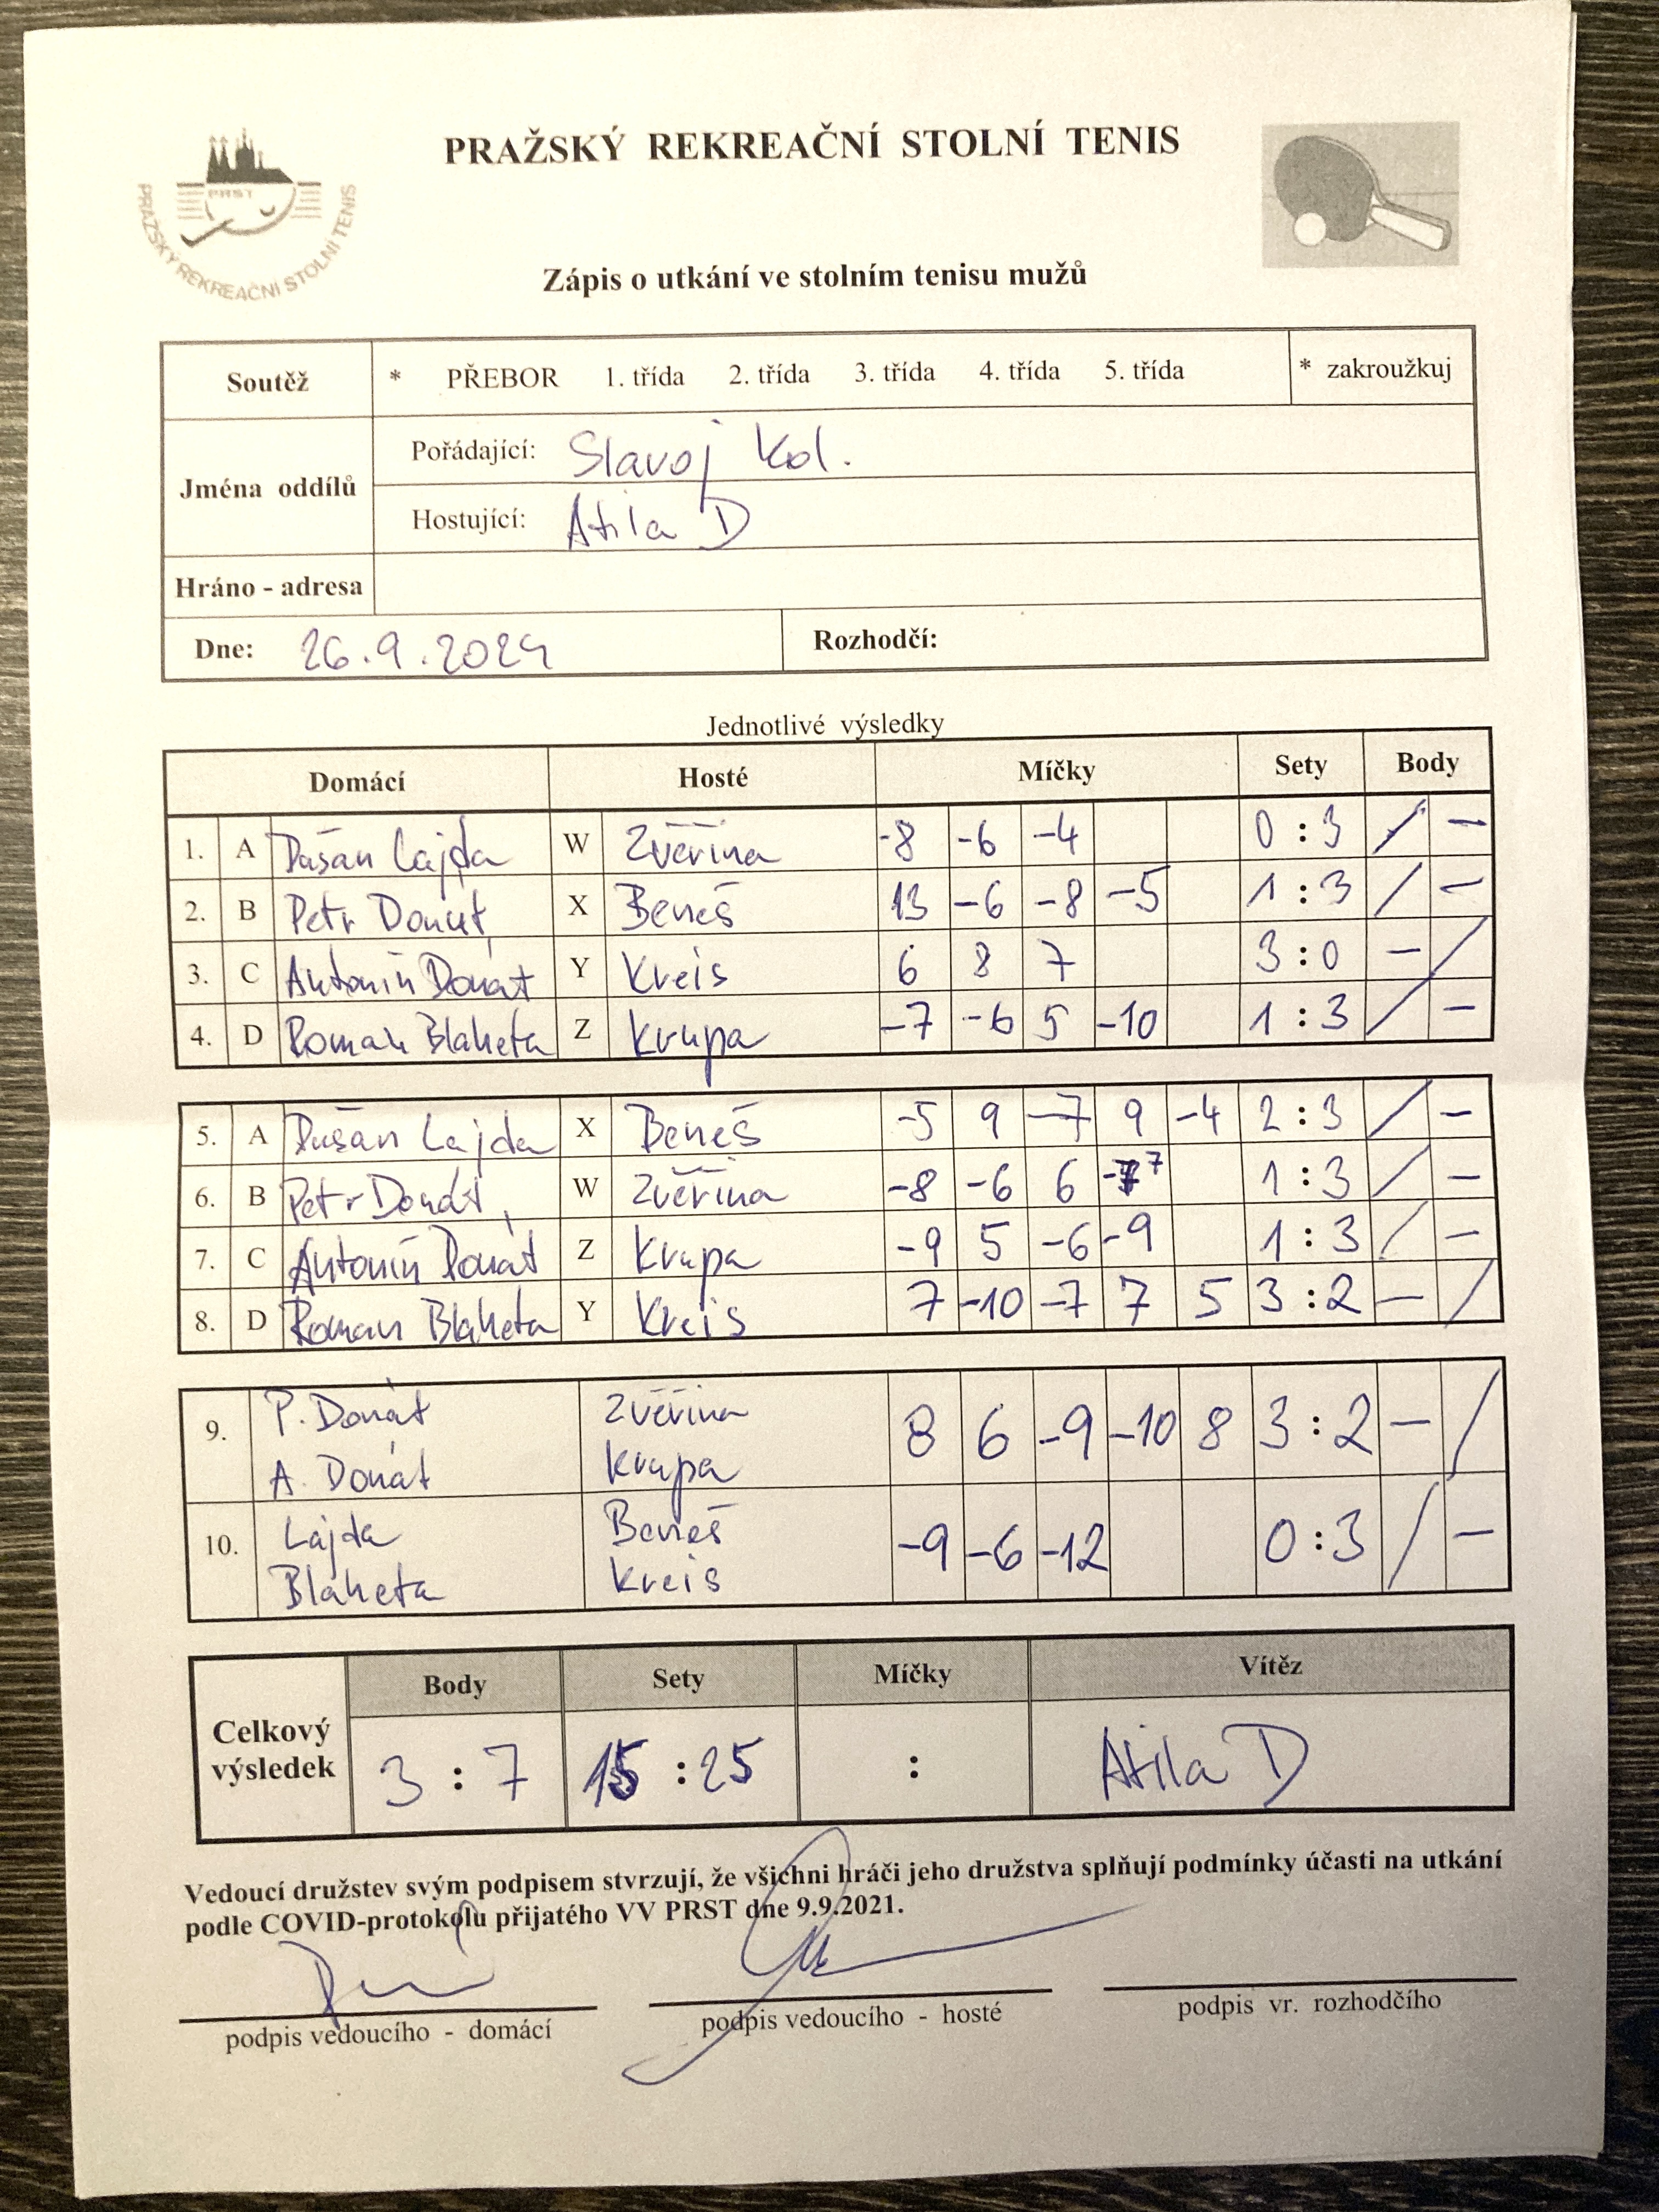 PRAŽSKÝ REKREAČNÍ STOLNÍ TENIS
PRST
PRAŽSKÝ REKREAČNÍ STOLNÍ TENIS
Zápis o utkání ve stolním tenisu mužů
Soutěž * PŘEBOR 1. třída 2. třída 3. třída 4. třída 5. třída * zakroužkuj
Jména oddílů
Pořádající: Slavoj Kol.
Hostující: Atila D
Hráno - adresa
Dne: 26.9.2024 Rozhodčí:
Jednotlivé výsledky
Domácí Hosté Míčky Sety Body
1. A Dušan Lajda W Zvěřina -8 -6 -4 0 : 3 / -
2. B Petr Donát X Beneš 13 -6 -8 -5 1 : 3 / -
3. C Antonín Donát Y Kreis 6 8 7 3 : 0 - /
4. D Roman Blaheta Z Krupa -7 -6 5 -10 1 : 3 / -
5. A Dušan Lajda X Beneš -5 9 -7 9 -4 2 : 3 / -
6. B Petr Donát W Zvěřina -8 -6 6 -7 1 : 3 / -
7. C Antonín Donát Z Krupa -9 5 -6 -9 1 : 3 / -
8. D Roman Blaheta Y Kreis 7 -10 -7 7 5 3 : 2 - /
P. Donát Zvěřina
9. 8 6 -9 -10 8 3 : 2 - /
A. Donát Krupa
Lajda Beneš
10. -9 -6 -12 0 : 3 / -
Blaheta Kreis
Body Sety Míčky Vítěz
Celkový výsledek 3 : 7 15 : 25 : Atila D
Vedoucí družstev svým podpisem stvrzují, že všichni hráči jeho družstva splňují podmínky účasti na utkání
podle COVID-protokolu přijatého VV PRST dne 9.9.2021.
podpis vedoucího - domácí podpis vedoucího - hosté podpis vr. rozhodčího